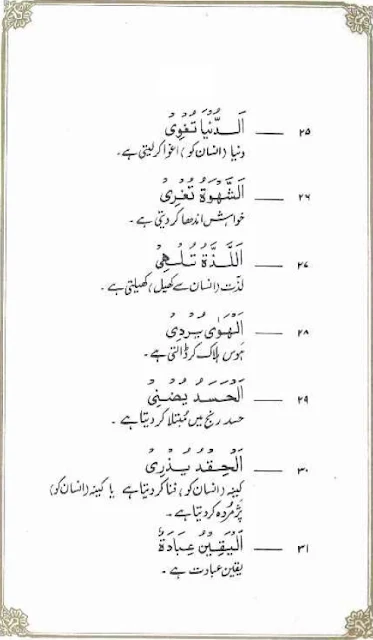 ۲۵ — اَلدُّنْيَا تُغْوِىْ
دنیا (انسان کو) اغوا کر لیتی ہے۔
۲۶ — اَلشَّهْوَةُ تُغْرِىْ
خواہش اندھا کر دیتی ہے۔
۲۷ — اَللَّذَّةُ تُلْهِىْ
لذت (انسان سے کھیل) کھیلتی ہے۔
۲۸ — اَلْهَوٰى يُرْدِىْ
ہوس ہلاک کر ڈالتی ہے۔
۲۹ — اَلْحَسَدُ يُضْنِىْ
حسد رنج میں مُبتلا کر دیتا ہے۔
۳۰ — اَلْحِقْدُ يُذْرِىْ
کینہ (انسان کو) فنا کر دیتا ہے یا کینہ (انسان کو)
پژمُردہ کر دیتا ہے۔
۳۱ — اَلْيَقِيْنُ عِبَادَةٌ
یقین عبادت ہے۔